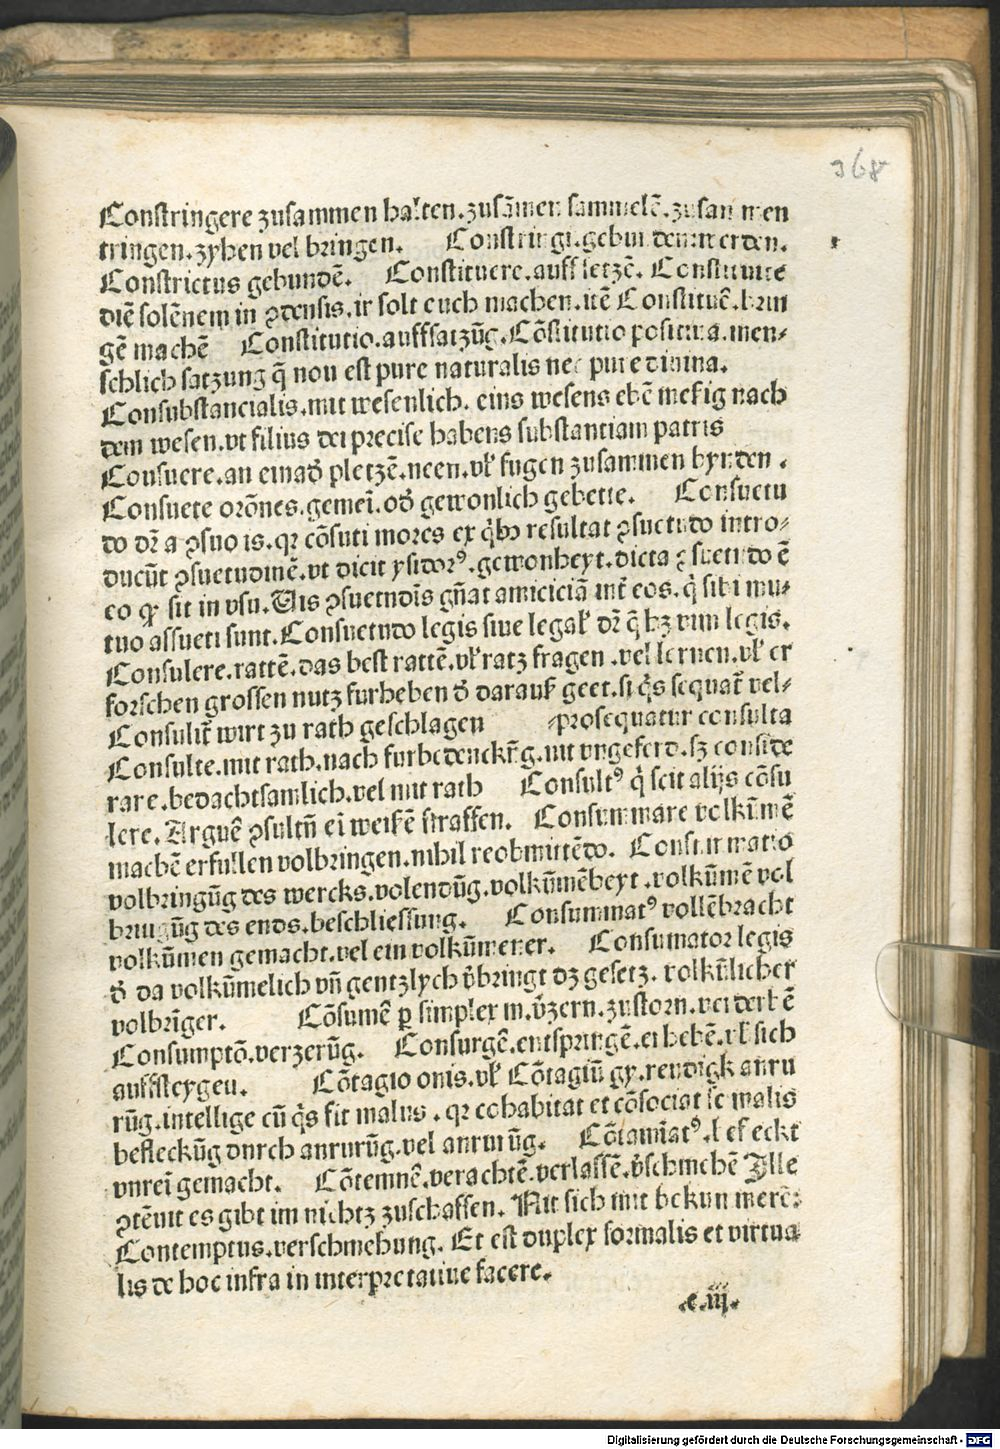 368
Constringere zusammen halten.zusãmen sammelẽ.zusammen
tringen.zyhen vel bringen. Constringi.gebunden werden.
Constrictus gebundẽ. Constituere.auff setzẽ. Constituite
diẽ solẽnem in ꝯdensis.ir solt euch machen.itẽ Constituẽ.brin
gẽ machẽ Constitutio.auffsatzũg.Cõstitutio positiua.men-
schlich satzung q̃ non est pure naturalis nec pure diuina.
Consubstancialis.mit wesenlich. eins wesens ebẽ messig nach
dem wesen.vt filius dei precise habens substantiam patris
Consuere.an einad̾ pletzẽ.neen.vľ fugen zusammen bynden.
Consuete orõnes.gemeĩ.od̾ gewonlich gebette. Consuetu
do dr̃ a ꝯsuo is.qꝛ cõsuti mores ex q̾bꝫ resultat ꝯsuetudo intro-
ducũt ꝯsuetudinẽ.vt dicit ysidorꝰ.gewonheyt.dicta ꝯsuetudo ẽ
eo ꝙ sit in vsu.Uis ꝯsuetudĩs gñat amiciciã int̃ eos.q̾ sibi mu-
tuo assueti sunt.Consuetudo legis siue legaľ dr̃ q̃ hꝫ vim legis.
Consulere.rattẽ.das best rattẽ.vľ ratz fragen.vel lernen.vľ er
forschen grossen nutz furheben d̾ darauß geet.si q̾s sequat̃ vel-
Consulit̃ wirt zu rath geschlagen -prosequatur consulta
Consulte.mit rath.nach furbedenckũg.nit vngeferd.sꝫ conside
rare.bedachtsamlich.vel mit rath Consultꝰ q̾ scit alijs cõsu
lere.Arguẽ ꝯsultũ eĩ weißẽ straffen. Consummare volkũmẽ
machẽ erfullen volbringen.nihil reobmittẽdo. Consummatio
volbringũg des wercks.volendũg.volkũmẽheyt.volkũmẽ vol
bringũg des ends.beschliessung. Consummatꝰ vollẽbracht
volkũmen gemacht.vel ein volkũmener. Consumator legis
d̾ da volkũmelich vñ gentzlych v̾bringt dꝫ gesetz. volkũlicher
volbrĩger. Cõsumẽ ꝑ simplex m.v̾zern.zustorn.verderbẽ
Consumptõ.verzerũg. Consurgẽ.entspringẽ.erhebẽ.vľ sich
auffsteygen. Cõtagio onis.vľ Cõtagiũ gij.reudigk anru
rũg.intellige cũ q̾s fit malus.qꝛ cohabitat et cõsociat se malis
befleckũg durch anrurũg.vel anrurũg. Cõtamĩatꝰ.befleckt
vnreĩ gemacht. Cõtemnẽ.verachtẽ.verlassẽ.v̾schmehẽ Ille
ꝯtẽnit es gibt im nichtz zuschaffen. Nit sich mit bekummerẽ:
Contemptus.verschmehung. Et est duplex formalis et virtua
lis de hoc infra in interpretatiue facere.
.e.iij.
Digitalisierung gefördert durch die Deutsche Forschungsgemeinschaft - DFG